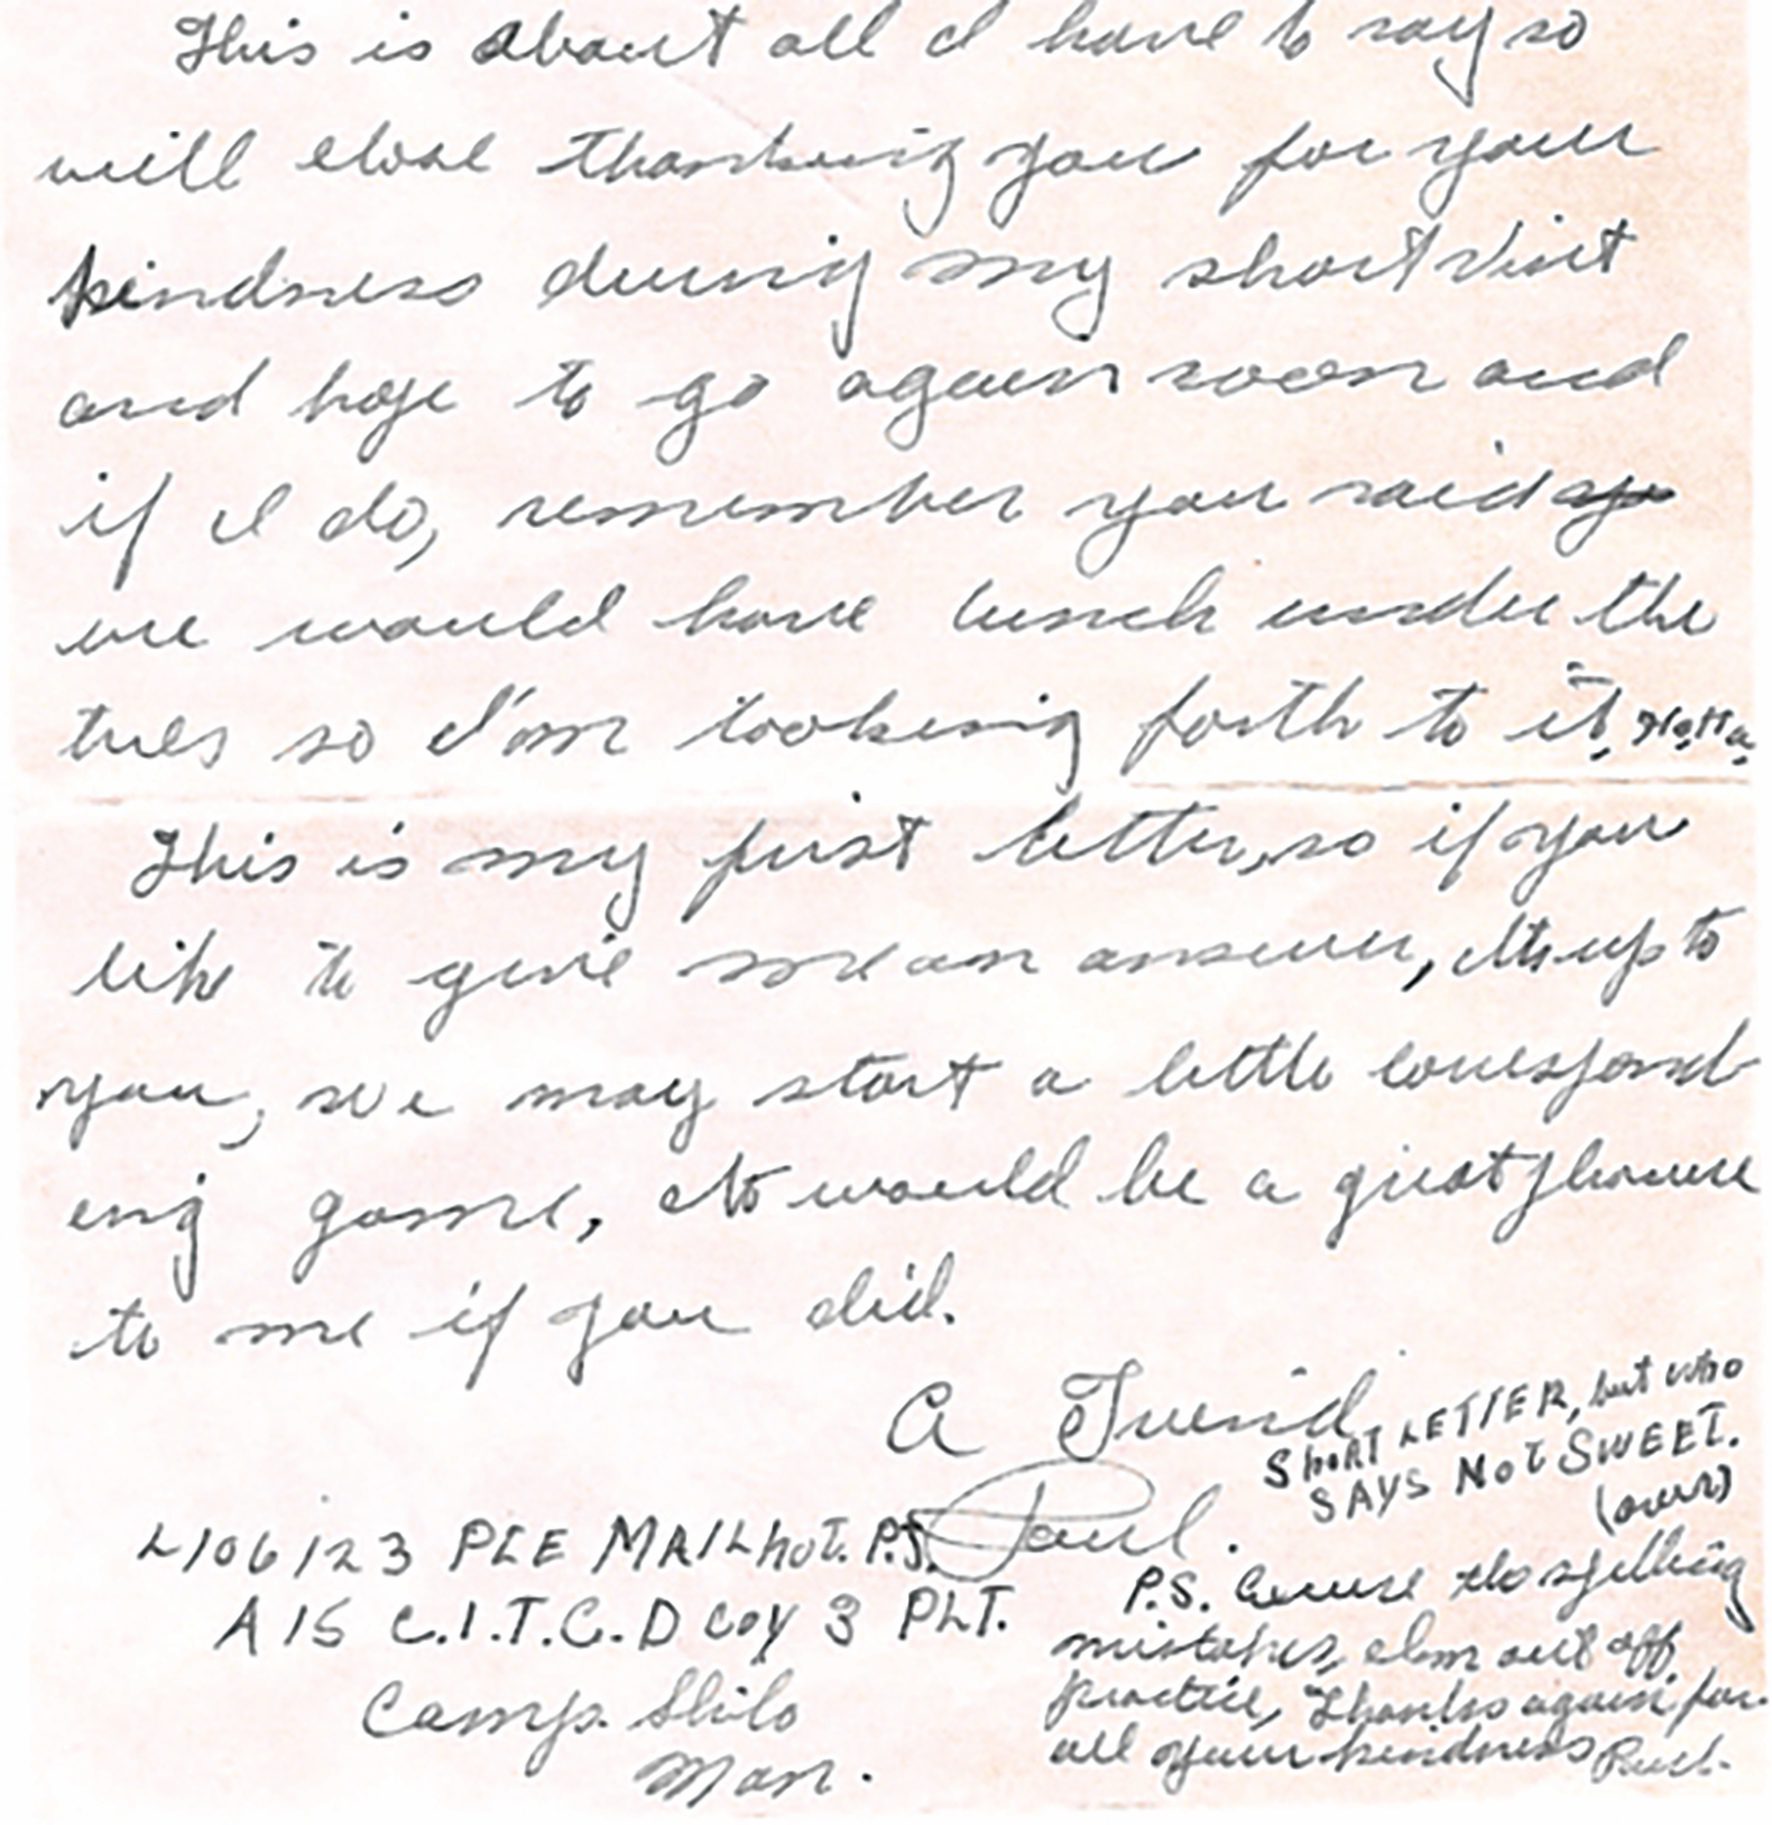 This is about all I have to say so
will close thanking you for your
kindness during my short visit
and hope to go again soon and
if I do, remember you said
we would have lunch under the
trees so I'm looking forth to it, Ha.Ha.
This is my first letter, so if you
like to give me an answer, its up to
you, we may start a little correspond-
ing game, It would be a great pleasure
to me if you did.
A Friend
Paul.
SHORT LETTER, but who
SAYS NOT SWEET.
(over)
L106123 PTE MAILhOT. P.J.
A15 C.I.T.C. D COY 3 PLT.
Camp. Shilo
Man.
P.S. Excuse the spelling
mistakes, I'm out off
practice, Thanks again for
all your kindness Paul.